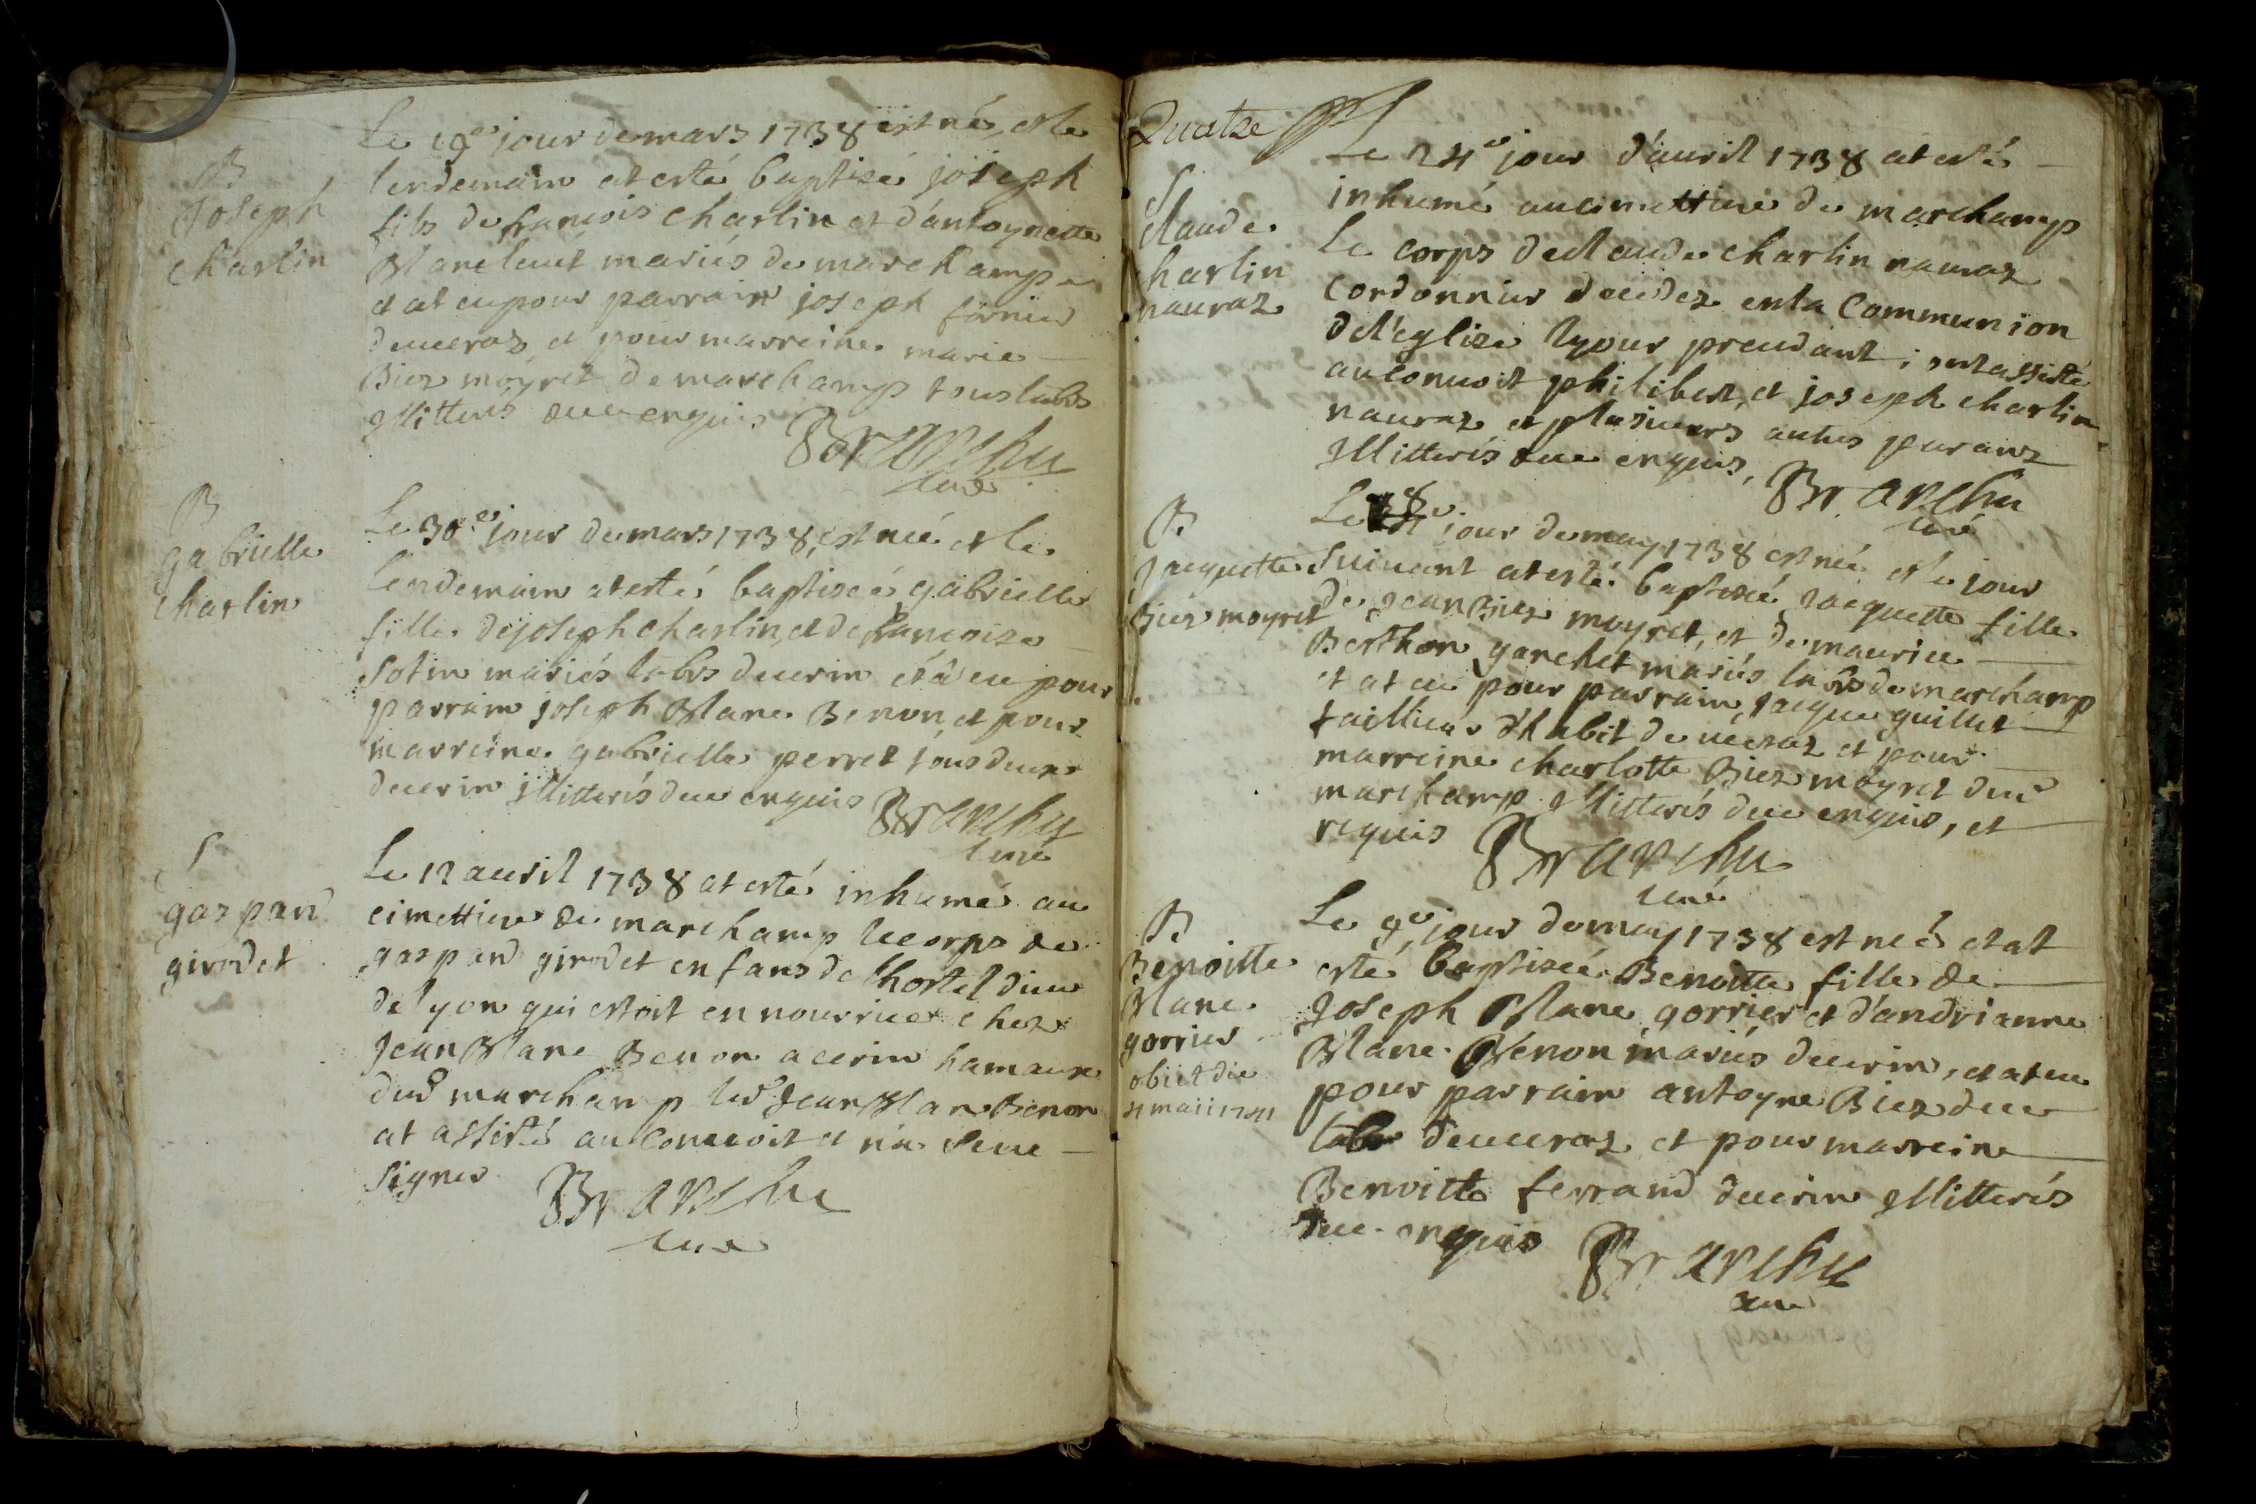 B
Joseph
charlin
Le 19e jour de mars 1738 est né, et le
lendemain at esté baptizé joseph
fils de francois charlin et d'antoynette
Blanc mariés de marchamp
et at eu pour parrain joseph
deuceraz et pour marreine marie
Biez moyret de marchamp tous labrs
Jllitterés de ce enquis
Brarchu
curé
B
gabrielle
charlin
Le 30e jour de mars 1738, est née et le
lendemain at esté baptizée gabrielle
fille de joseph charlin, et de francoise
Sotin mariés labrs de cerin et a eu pour
parrain joseph Blanc Benon, et pour
marreine gabrielle perret tous deux
de cerin jllitterés de ce enquis
Brarchu
curé
S
gaspard
girodet
Le 12 auril 1738 at esté inhumé au
cimettiere de marchamp le corps de
gaspard girodet enfans de lhostel dieu
de lyon qui estoit en nourrice chez
Jean Blanc Benon a cerin hamaux
dud marchamp led Jean Blanc Benon
at assisté au conuoit et n'a sceu
signer
Brarchu
curé
Quatre
S
Claude
charlin
nauraz
Le 24e jour d'auril 1738 at esté
inhumé au cimettiere de marchamp
le corps de claude charlin nauraz
cordonnier decedez en la Communion
de l'eglize ; ont assisté
au conuoit philibert, et joseph charlin
nauraz et plusieurs autres parans
Jllitterés de ce enquis,
Brarchu
curé
B
Jacquette
Biez moyret
Le 8e jour de may 1738 est née et le jour
Suiuant at esté baptizé Jacquette fille
de Jean Biez moyret, et de maurice
Berthon ganchet mariés labrs de marchamp
et at eu pour parrain, Jacque guillet
tailleur d'habit de ueeraz et pour
marreine charlotte Biez moyret dud
marchamp Jllitterés de ce enquis, et
requis
Brarchu
curé
B
Benoitte
Blanc
gorrier
obiit die
21 maii 1741
Le 9e jour de may 1738 est neé et at
esté baptizée Benoitte fille de
Joseph Blanc gorrier et d'andrianne
Blanc Bénon mariés de cerin, et at eu
pour parrain antoyne Biez
labr deuceraz et pour marreine
Benoitte ferrand de cerin Jllitterés
de ce enquis
Brarchu
curé